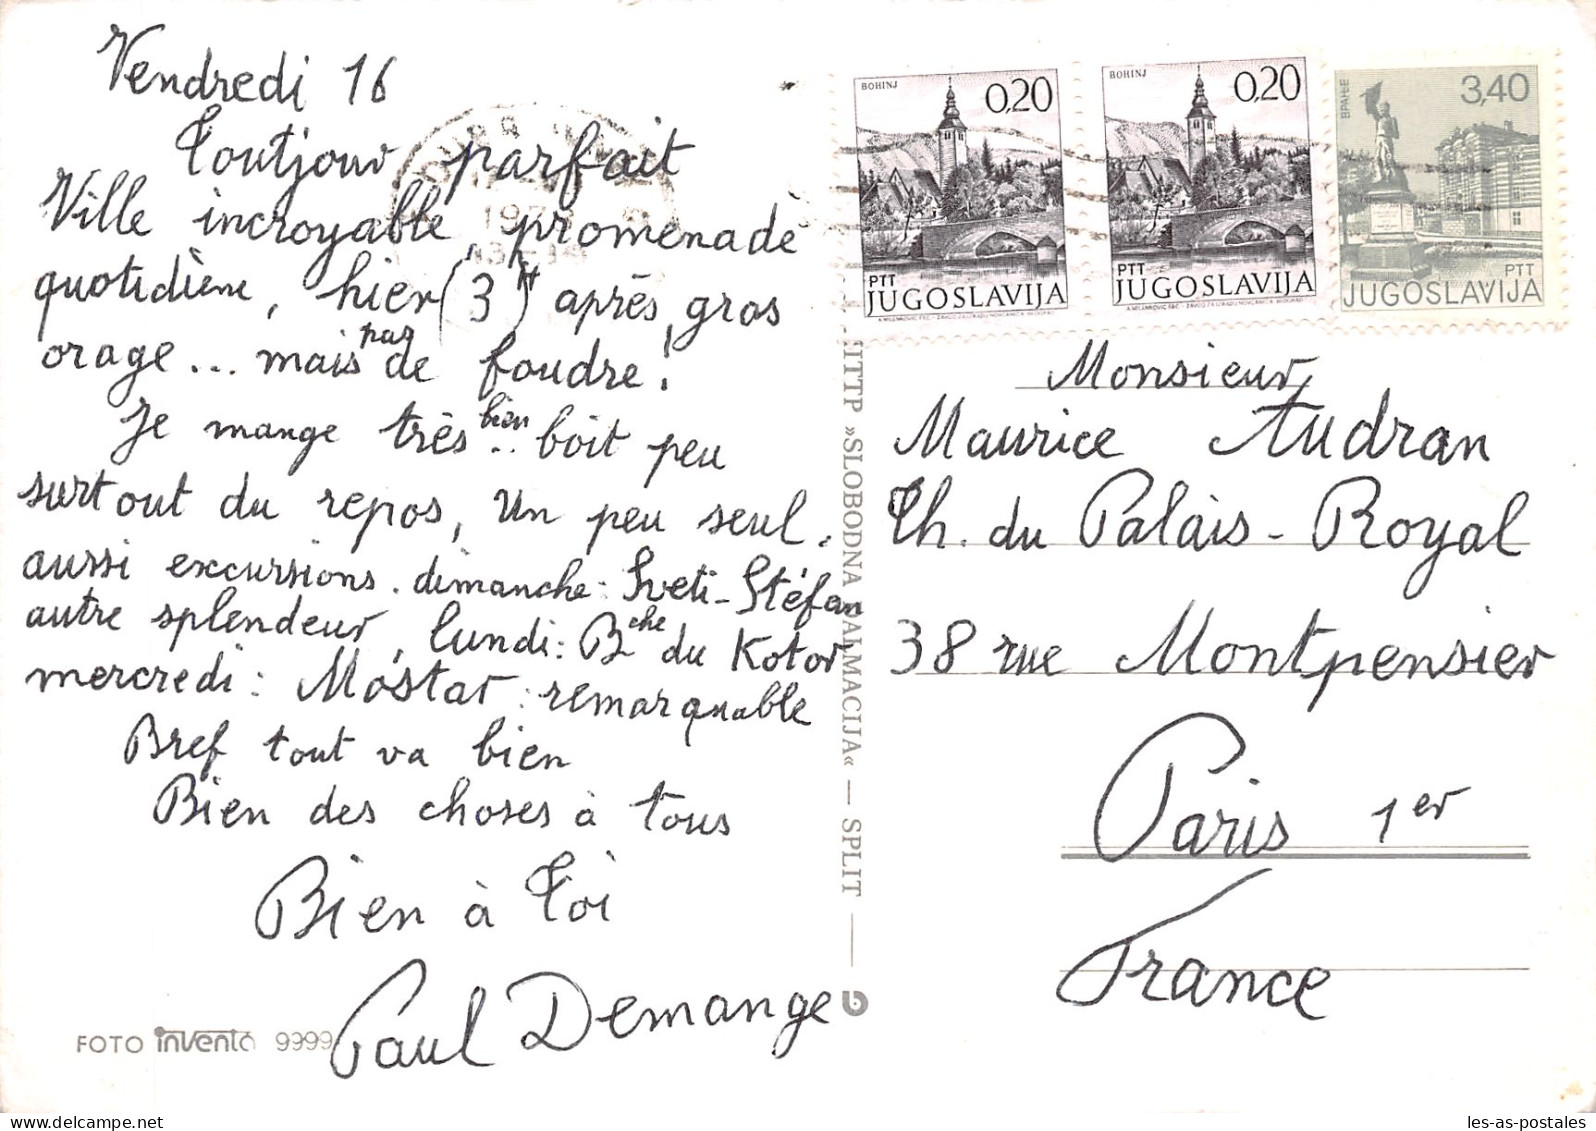 Vendredi 16
Toutjour parfait
Ville incroyable, promenade
quotidiène, hier (3 H) après gros
orage... mais pas de foudre!
Je mange très bien.. boit peu
surtout du repos, un peu seul.
aussi excursions. dimanche: Sveti-Stéfan
autre splendeur, lundi: Bche du Kotor,
mercredi: Mostar: remarquable
Bref tout va bien
Bien des choses à tous
Bien à Toi
Paul Demange
FOTO invento 9999
HTTP »SLOBODNA DALMACIJA« — SPLIT
BOHINJ
0,20
PTT
JUGOSLAVIJA
BOHINJ
0,20
PTT
JUGOSLAVIJA
ВРАЊЕ
3,40
PTT
JUGOSLAVIJA
Monsieur
Maurice Audran
Th. du Palais-Royal
38 rue Montpensier
Paris 1er
France
les-as-postales